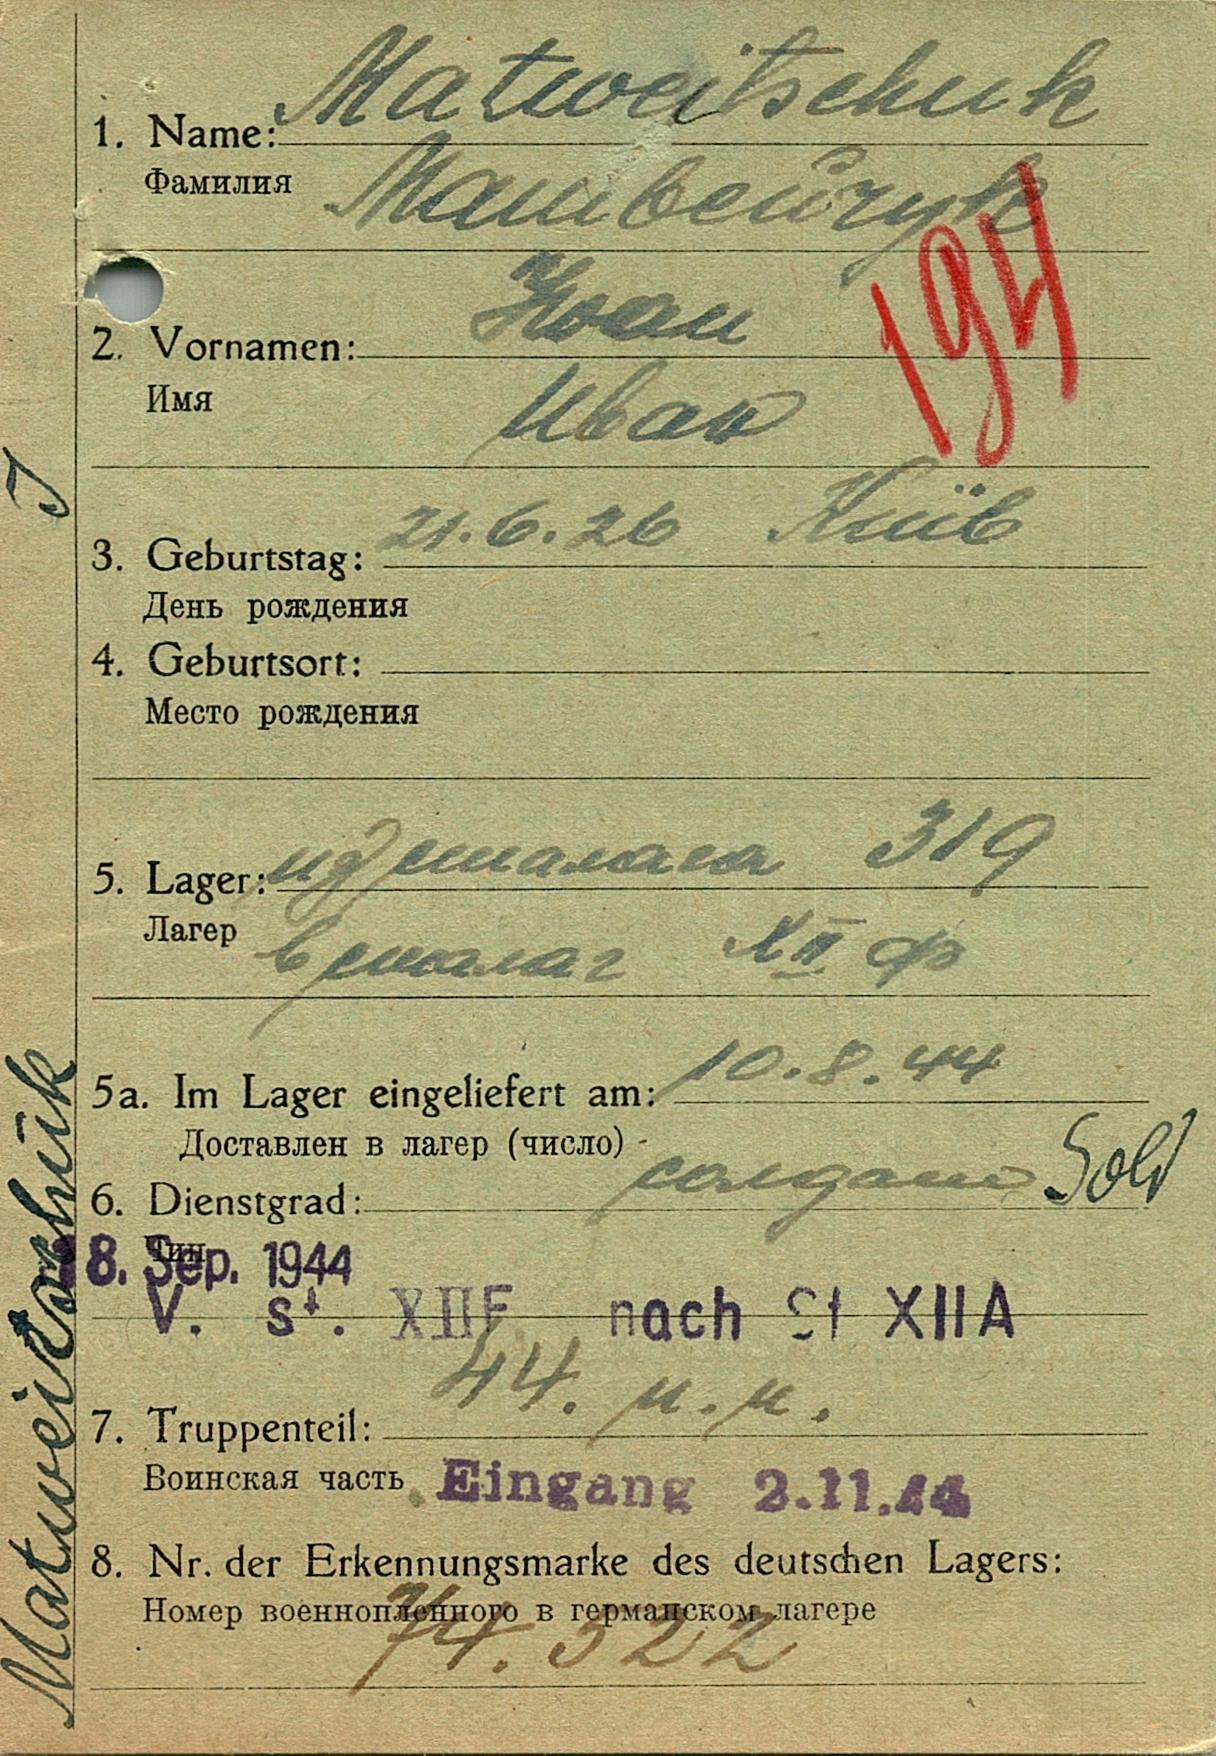 Matweitschuk
1. Name:
Фамилия
Матвейчук
194
Iwan
2. Vornamen:
Имя
Иван
21.6.26 Київ
3. Geburtstag:
День рождения
4. Geburtsort:
Место рождения
из шталага 319
5. Lager:
Лагер
в шталаг XII Ф
10.8.44
5a. Im Lager eingeliefert am:
Доставлен в лагер (число)
солдат Sold
6. Dienstgrad:
Чин
18. Sep. 1944
V. St. XIIF nach St XIIA
44. п.п.
7. Truppenteil:
Воинская часть
Eingang 2.11.44
8. Nr. der Erkennungsmarke des deutschen Lagers:
Номер военнопленного в германском лагере
74.322
Matweitschuk J